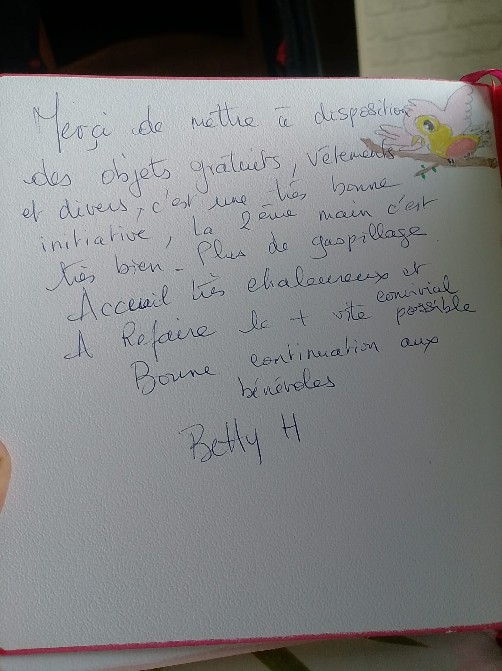 Merçi de mettre à disposition
des objets gratuits, vêtements
et divers, c'est une très bonne
initiative, la 2ème main c'est
très bien - Plus de gaspillage
Acceuil très chaleureux et convivial
A Refaire le + vite possible
Bonne continuation aux
bénévoles
Betty H